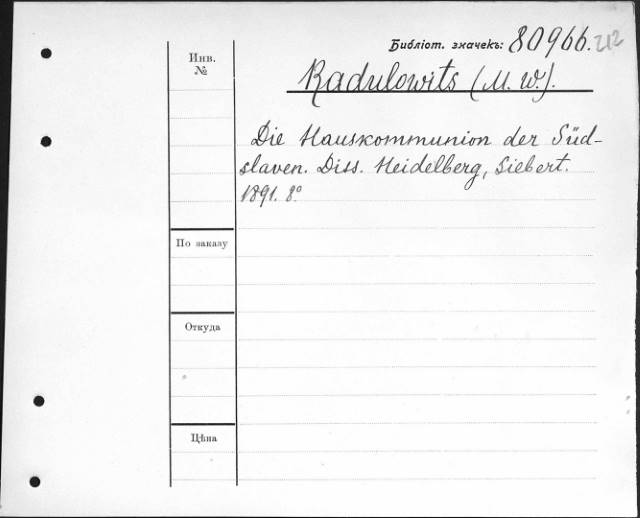 Библіот. значекъ: 80966. 212
Инв.
№
Radulowits (M. W.).
Die Hauskommunion der Süd-
slaven. Diss. Heidelberg, Siebert.
1891. 8°
По заказу
Откуда
Цѣна